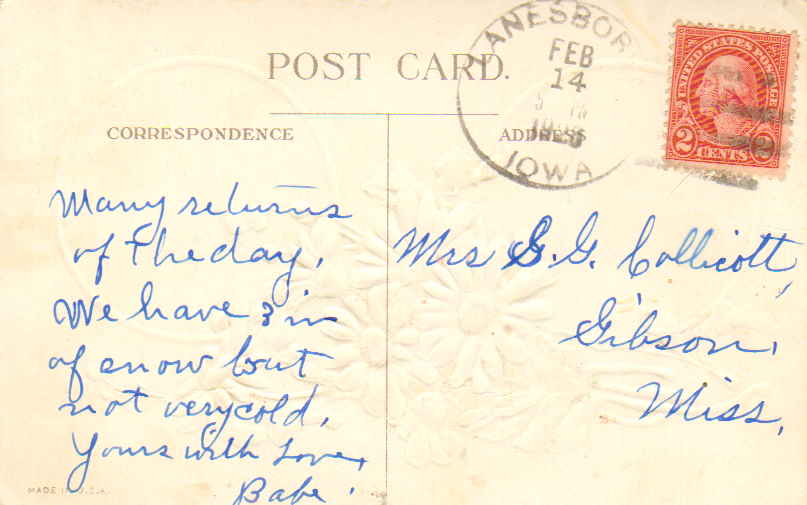 POST CARD.
LANESBOR
FEB
14
IOWA
UNITED STATES POSTAGE
2 CENTS 2
CORRESPONDENCE
ADDRESS
Many returns
of the day,
We have 3 in
of snow but
not very cold,
Yours with Love,
Babe.
Mrs G. G. Collicott,
Gibson,
Miss,
MADE IN U.S.A.